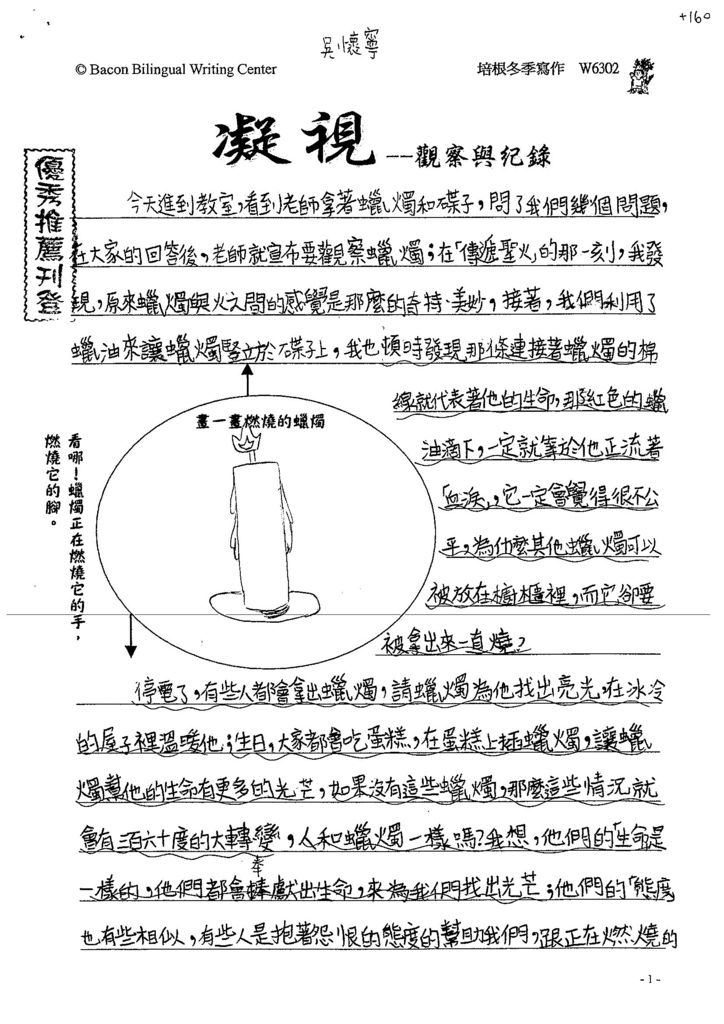 +160
吳懷寧
© Bacon Bilingual Writing Center
培根冬季寫作 W6302
凝視--觀察與紀錄
優秀推薦刊登
今天進到教室,看到老師拿著蠟燭和碟子,問了我們幾個問題,
在大家的回答後,老師就宣布要觀察蠟燭;在「傳遞聖火」的那一刻,我發
現,原來蠟燭與火之間的感覺是那麼的奇特、美妙,接著,我們利用了
蠟油來讓蠟燭豎立於碟子上,我也頓時發現那條連接著蠟燭的棉
線就代表著他的生命,那紅色的蠟
油滴下,一定就等於他正流著
「血淚」,它一定會覺得很不公
平,為什麼其他蠟燭可以
被放在櫥櫃裡,而它卻要
被拿出來一直燒?
畫一畫燃燒的蠟燭
看哪!蠟燭正在燃燒它的手,
燃燒它的腳。
停電了,有些人都會拿出蠟燭,請蠟燭為他找出亮光,在冰冷
的屋子裡溫暖他;生日,大家都會吃蛋糕,在蛋糕上插蠟燭,讓蠟
燭幫他的生命有更多的光芒,如果沒有這些蠟燭,那麼這些情況就
會有三百六十度的大轉變,人和蠟燭一樣嗎?我想,他們的「生命」是
一樣的,他們都會奉獻出生命,來為我們找出光芒;他們的「態度」
也有些相似,有些人是抱著怨恨的態度的幫助我們,跟正在燃燒的
-1-